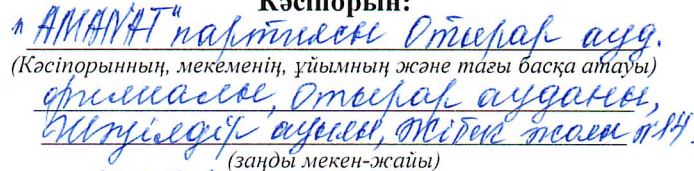 Кәсіпорын:
"AMANAT" партиясы Отырар ауд.
(Кәсіпорынның, мекеменің, ұйымның және тағы басқа атауы)
филиалы, Отырар ауданы,
ауылы, Жібек жолы №14.
(заңды мекен-жайы)